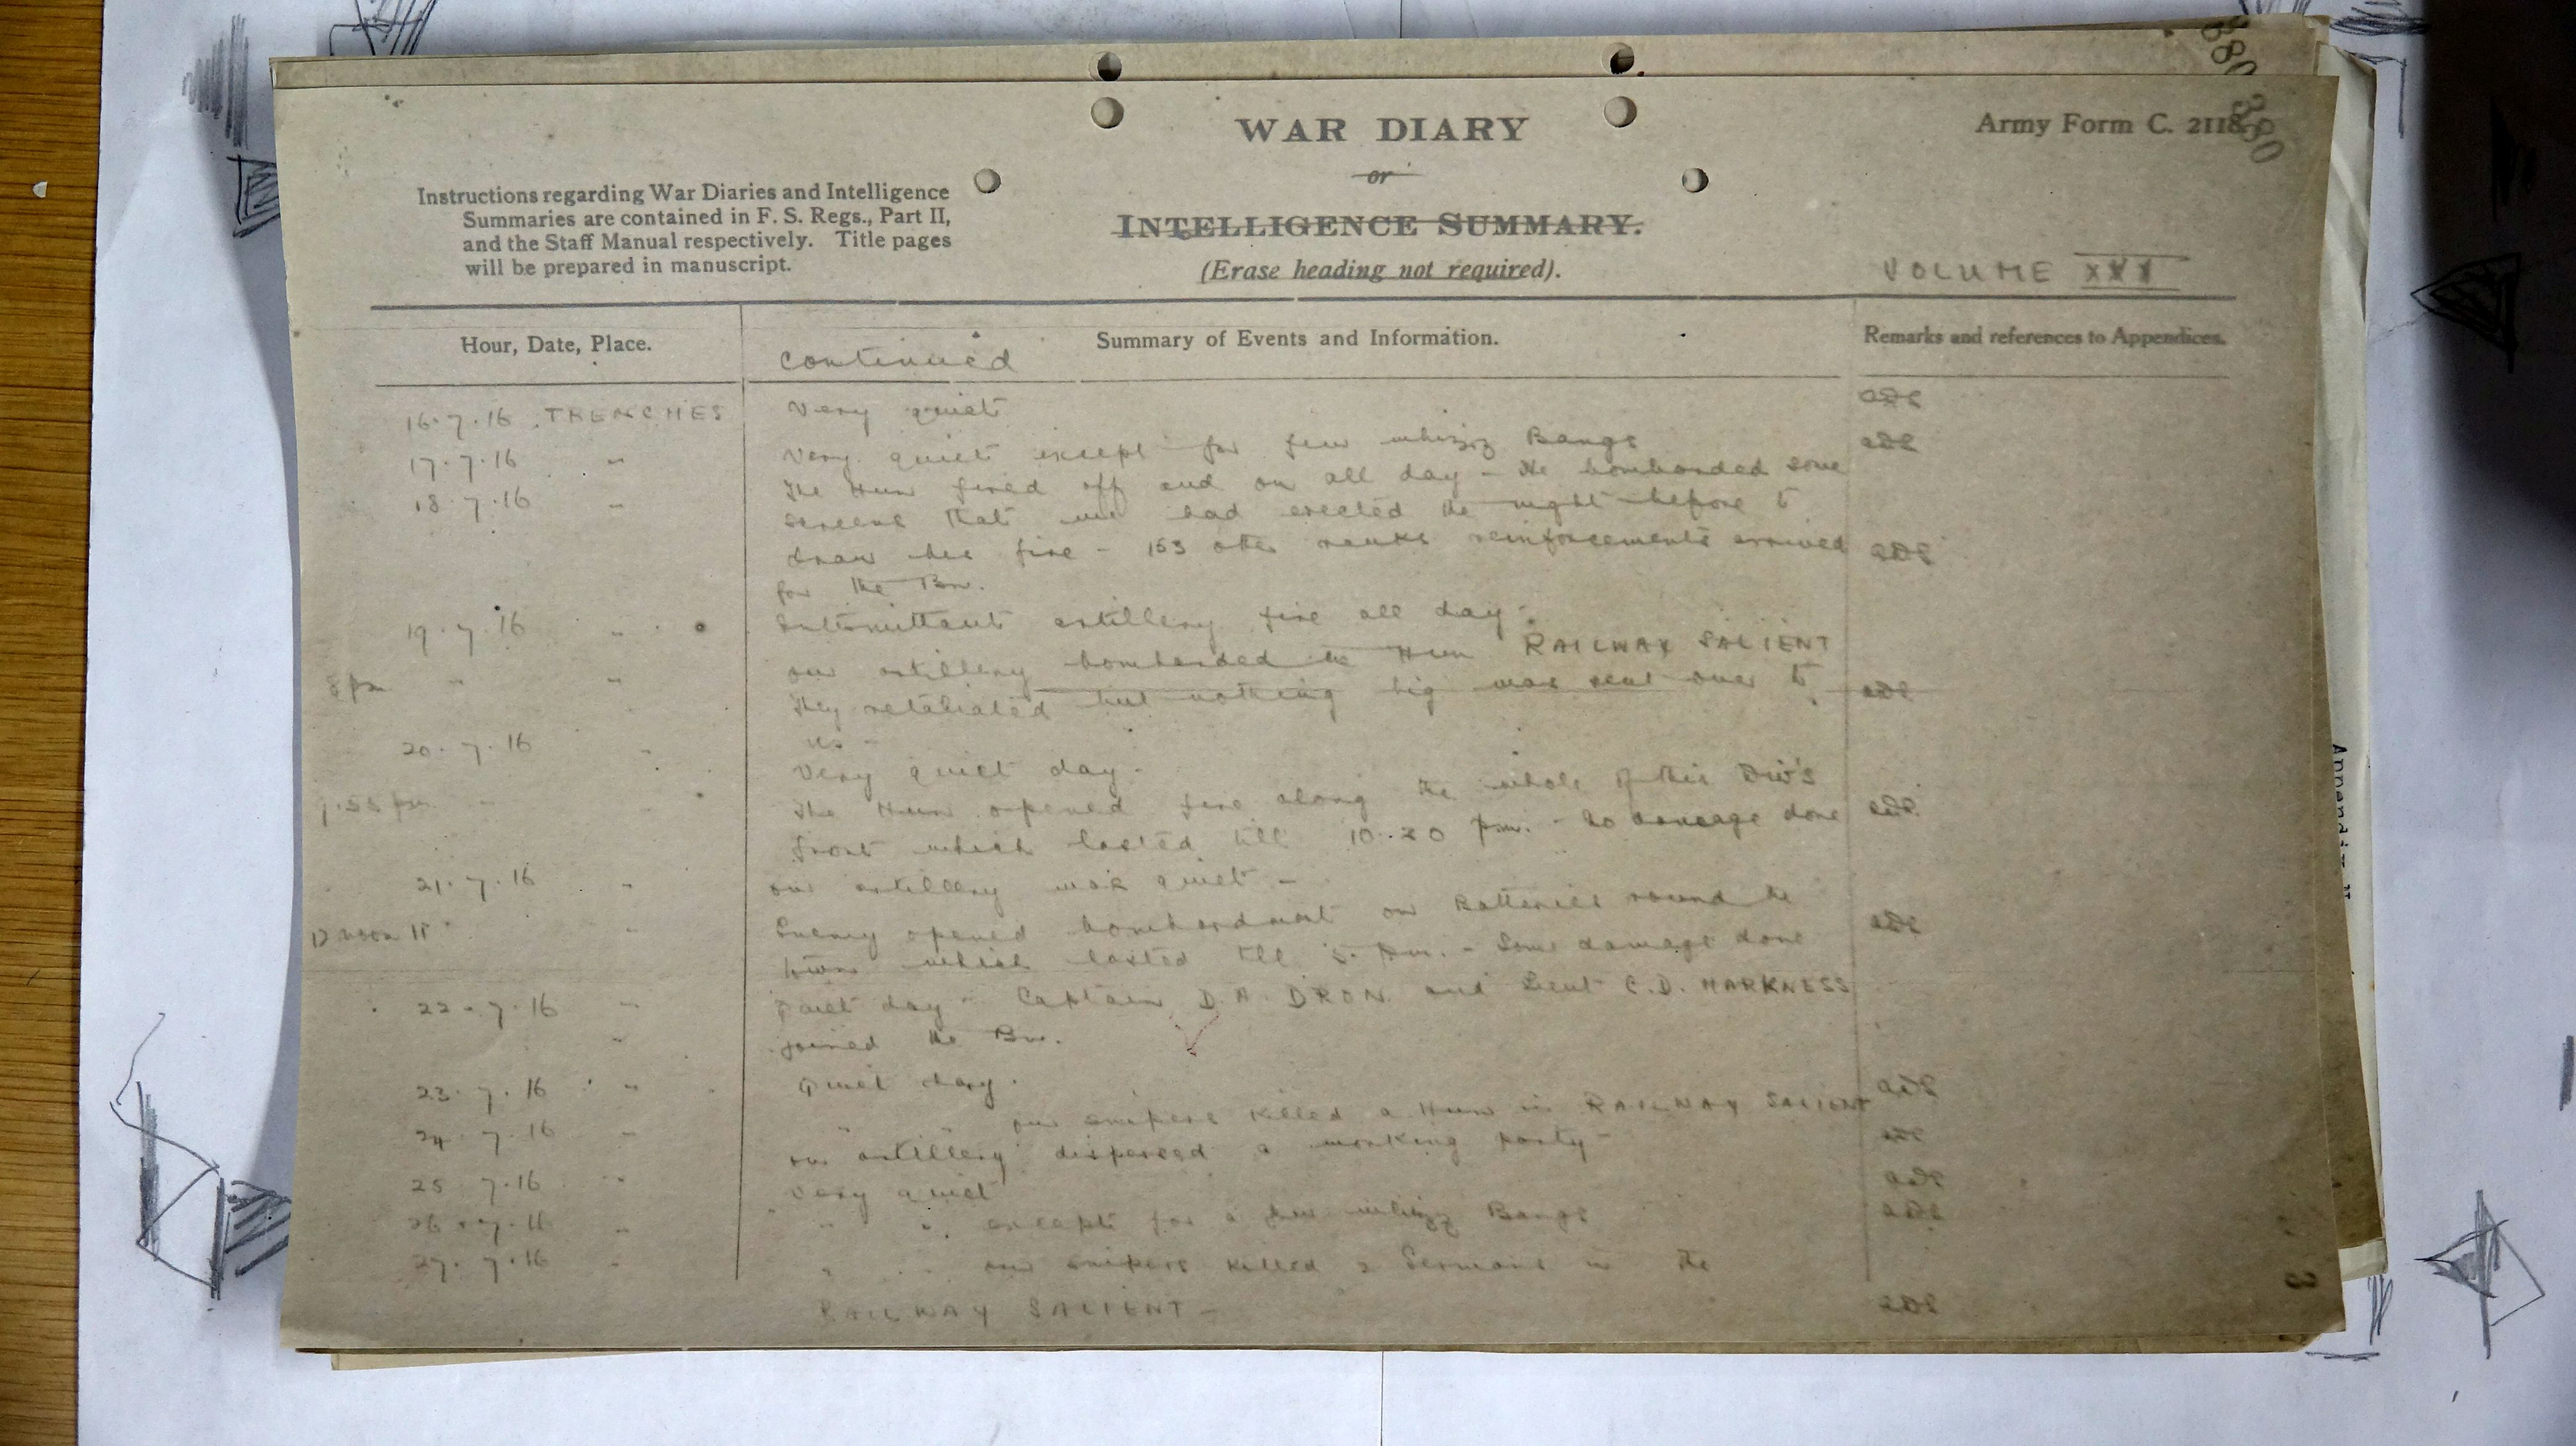 380
380
WAR DIARY
Army Form C. 2118.
or
Instructions regarding War Diaries and Intelligence
Summaries are contained in F. S. Regs., Part II,
and the Staff Manual respectively. Title pages
will be prepared in manuscript.
INTELLIGENCE SUMMARY.
(Erase heading not required).
VOLUME XXI
Hour, Date, Place.
Summary of Events and Information.
Remarks and references to Appendices.
continued
16.7.16 TRENCHES Very quiet
17.7.16 " Very quiet except for few whizz Bangs
18.7.16 " The Hun fired off and on all day - He bombarded some
screens that we had erected the night before to
draw his fire - 153 other ranks reinforcements arrived
for the Bn.
19.7.16 " Intermittent artillery fire all day -
8 pm " " our artillery bombarded the Hun RAILWAY SALIENT
They retaliated but nothing big was sent over to
us -
20.7.16 " Very quiet day -
.55 pm " The Hun opened fire along the whole of this Div's
front which lasted till 10.20 pm. - no damage done
21.7.16 " our artillery was quiet -
12 noon " " Enemy opened bombardment on Batteries round the
town which lasted till 5. pm. - Some damage done
22.7.16 " Quiet day - Captain D.A. DRON and Lieut C.D. HARKNESS
" joined the Bn.
23.7.16 " Quiet day.
24.7.16 " " " our snipers killed a Hun in RAILWAY SALIENT
our artillery dispersed a working party -
25.7.16 " Very quiet
26.7.16 " " " except for a few whizz Bangs
27.7.16 " " " our snipers killed 2 Germans in the
RAILWAY SALIENT -
3